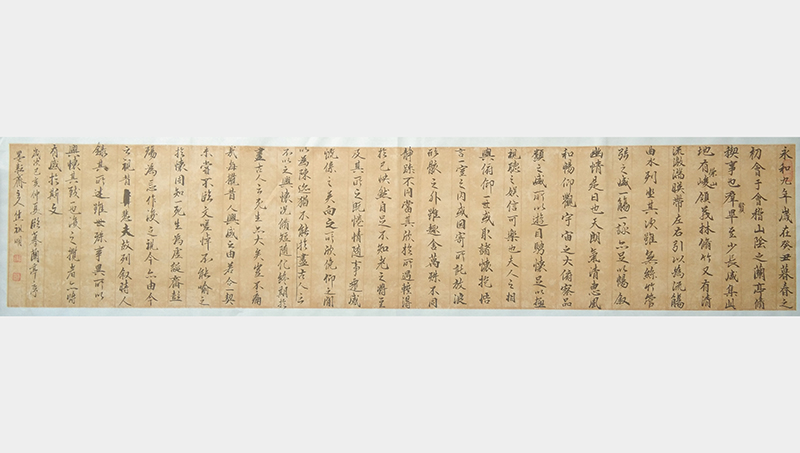 永和九年歲在癸丑暮春之
初會于會稽山陰之蘭亭脩
禊事也羣賢畢至少長咸集此
地有崇山峻領茂林脩竹又有清
流激湍暎帶左右引以為流觴
曲水列坐其次雖無絲竹管
弦之盛一觴一詠亦足以暢敘
幽情是日也天朗氣清惠風
和暢仰觀宇宙之大俯察品
類之盛所以遊目騁懷足以極
視聽之娛信可樂也夫人之相
與俯仰一世或取諸懷抱悟
言一室之內或因寄所託放浪
形骸之外雖趣舍萬殊不同
靜躁不同當其欣於所遇暫得
於己快然自足不知老之將至
及其所之既惓情隨事遷感
慨係之矣向之所欣俛仰之閒
以為陳迹猶不能
不以之興懷況脩短隨化終期於
盡古人云死生亦大矣豈不痛
哉每攬昔人興感之由若合一契
未嘗不臨文嗟悼不能喻之
於懷固知一死生為虛誕齊彭
殤為妄作後之視今亦由今
之視昔悲夫故列敘時人
錄其所述雖世殊事異所以
興懷其致一也後之攬者亦將
有感於斯文
歲次己亥仲夏臨摹蘭亭序
墨耘齋主人